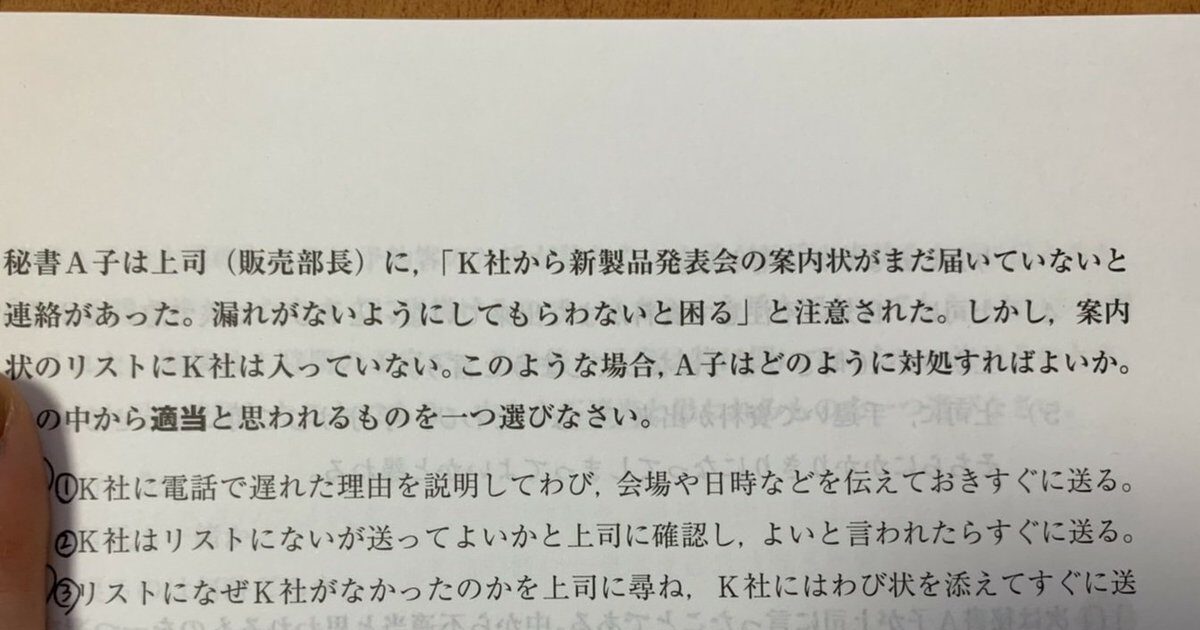 秘書A子は上司（販売部長）に，「K社から新製品発表会の案内状がまだ届いていないと
連絡があった。漏れがないようにしてもらわないと困る」と注意された。しかし，案内
状のリストにK社は入っていない。このような場合，A子はどのように対処すればよいか。
の中から適当と思われるものを一つ選びなさい。
①K社に電話で遅れた理由を説明してわび，会場や日時などを伝えておきすぐに送る。
②K社はリストにないが送ってよいかと上司に確認し，よいと言われたらすぐに送る。
③リストになぜK社がなかったのかを上司に尋ね，K社にはわび状を添えてすぐに送